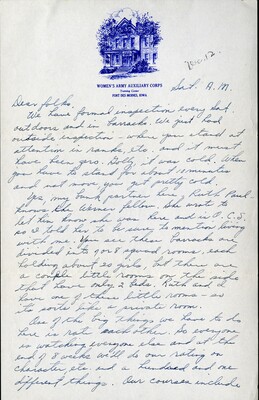 WOMEN'S ARMY AUXILIARY CORPS
Training Center
FORT DES MOINES, IOWA
Sat. A.M.
Dear folks,
We have formal inspection every Sat.
outdoors and in barracks. We just had
outside inspection - where you stand at
attention in ranks, etc. and it must
have been zero. Golly it was cold. When
you have to stand for about 10 minutes
and not move you get pretty cold.
Yes, my bunk partner here, Ruth
knows the fellow. She wrote to
tell him she was here and in O.C.S.
so I told her to be sure to mention being
with me. You see these barracks are
divided into 7 or 8 squad rooms, each
holding about 20 girls, but there are
a couple little rooms on the side
that have only 2 beds. Ruth and I
have one of these little rooms - so
its sorta like a private room.
One of the big things we have to do
here is rate each other. So everyone
is watching everyone else and at the
end of 8 weeks will do our rating on
character, etc. and a hundred and one
different things. Our courses include